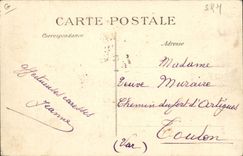 CARTE POSTALE
Correspondance
Adresse
Affectueuses caresses
Jeanne
Madame
Veuve Muraire
Chemin du fort d'Artigues
Toulon
(Var)